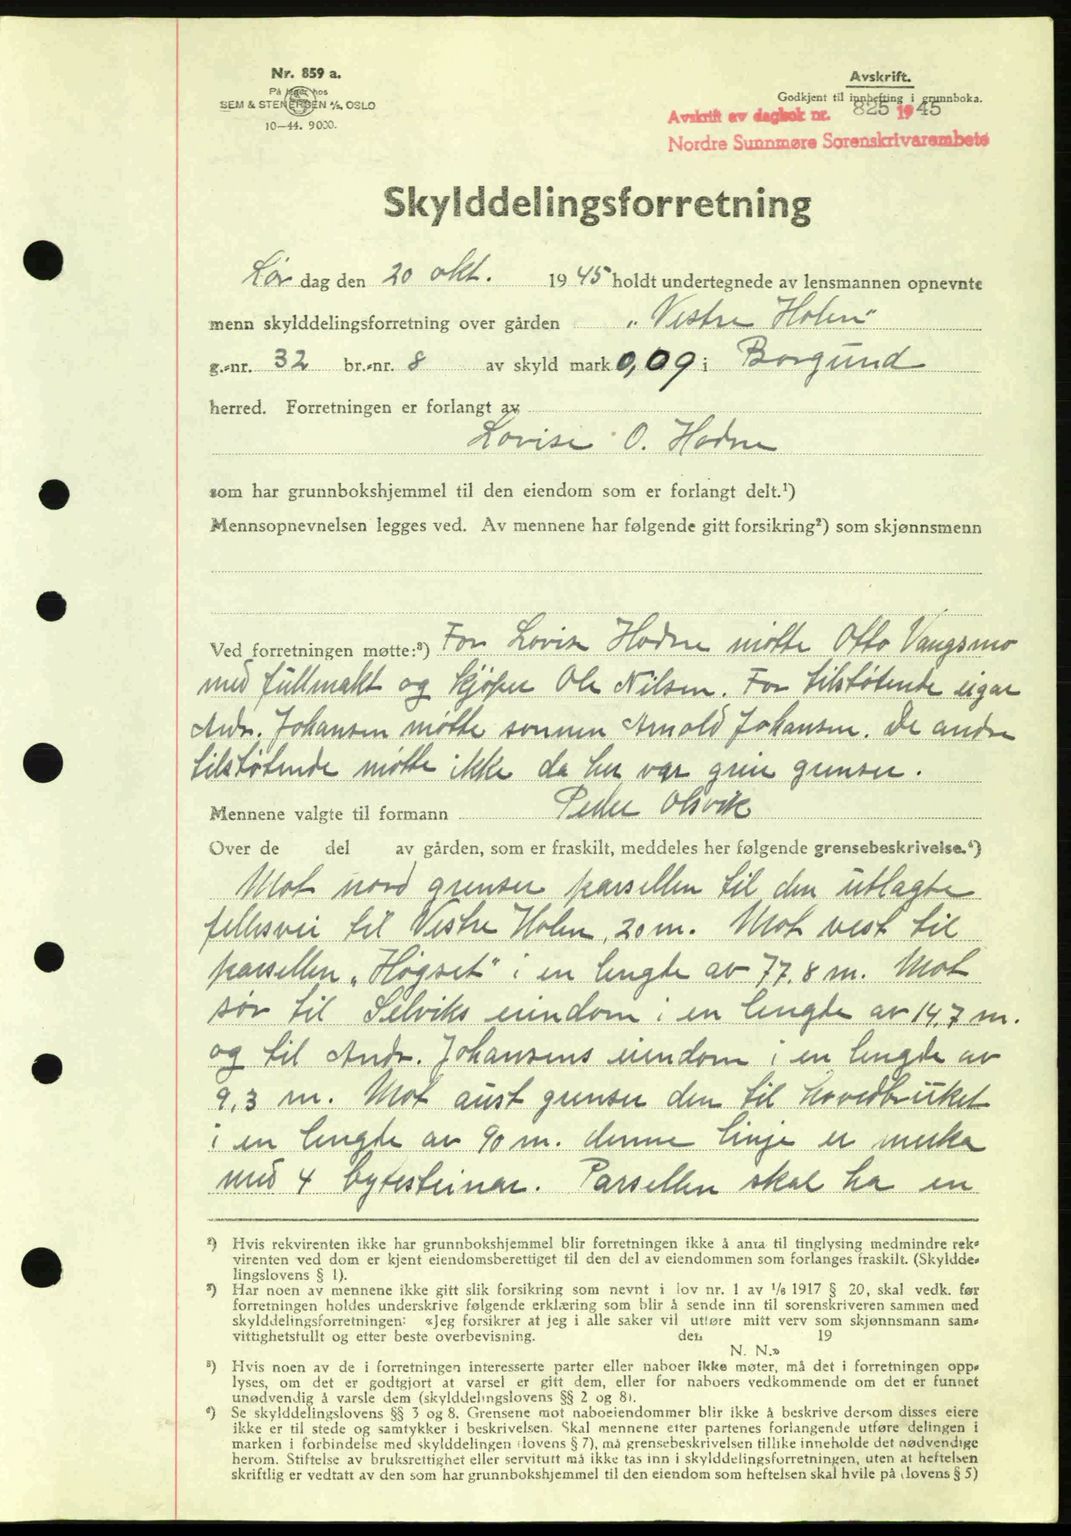 Nr. 859 a.
På lager hos
SEM & STENERSEN A/S, OSLO
10—44. 9000.
Avskrift.
Godkjent til innhefting i grunnboka.
Avskrift av dagbok nr. 825 1945
Nordre Sunnmøre Sorenskrivarembete
Skylddelingsforretning
Lør dag den 20 okt. 1945 holdt undertegnede av lensmannen opnevnte
menn skylddelingsforretning over gården „Vestre Holen“
g.-nr. 32 br.-nr. 8 av skyld mark 0,09 i Borgund
herred. Forretningen er forlangt av
Lovise O. Hodne
som har grunnbokshjemmel til den eiendom som er forlangt delt.¹)
Mennsopnevnelsen legges ved. Av mennene har følgende gitt forsikring²) som skjønnsmenn
Ved forretningen møtte:³) For Lovise Hodne møtte Otto Vangsmo
med fullmakt og kjøper Ole Nilsen. For tilstøtende eigar
Andr. Johansen møtte sønnen Arnold Johansen. De andre
tilstøtende møtte ikke da her var greie grenser.
Mennene valgte til formann Peder Olsvik
Over de del av gården, som er fraskilt, meddeles her følgende grensebeskrivelse.⁴)
Mot nord grenser parsellen til den utlagte
fellesvei til Vestre Holen, 20 m. Mot vest til
parsellen „Høgset“ i en lengde av 77.8 m. Mot
sør til Selviks eiendom i en lengde av 14.7 m.
og til Andr. Johansens eiendom i en lengde av
9.3 m. Mot aust grenser den til hovedbruket
i en lengde av 90 m. denne linje er merka
med 4 bytesteinar. Parsellen skal ha en
²) Hvis rekvirenten ikke har grunnbokshjemmel blir forretningen ikke å anta til tinglysing medmindre rek-
virenten ved dom er kjent eiendomsberettiget til den del av eiendommen som forlanges fraskilt. (Skyldde-
lingslovens § 1).
³) Har noen av mennene ikke gitt slik forsikring som nevnt i lov nr. 1 av ¹/₆ 1917 § 20, skal vedk. før
forretningen holdes underskrive følgende erklæring som blir å sende inn til sorenskriveren sammen med
skylddelingsforretningen: «Jeg forsikrer at jeg i alle saker vil utføre mitt verv som skjønnsmann sam-
vittighetsfullt og etter beste overbevisning. den 19
N. N.»
³) Hvis noen av de i forretningen interesserte parter eller naboer ikke møter, må det i forretningen opp-
lyses, om det er godtgjort at varsel er gitt dem, eller for naboers vedkommende om det er funnet
unødvendig å varsle dem (skylddelingslovens §§ 2 og 8).
⁴) Se skylddelingslovens §§ 3 og 8. Grensene mot naboeiendommer blir ikke å beskrive dersom disses eiere
ikke er til stede og samtykker i beskrivelsen. Skal mennene etter partenes forlangende utføre delingen i
marken i forbindelse med skylddelingen (lovens § 7), må grensebeskrivelsen tillike inneholde det nødvendige
herom. Stiftelse av bruksrettighet eller servitutt må ikke tas inn i skylddelingsforretningen, uten at heftelsen
skriftlig er vedtatt av den som har grunnbokshjemmel til den eiendom som heftelsen skal hvile på (lovens § 5)